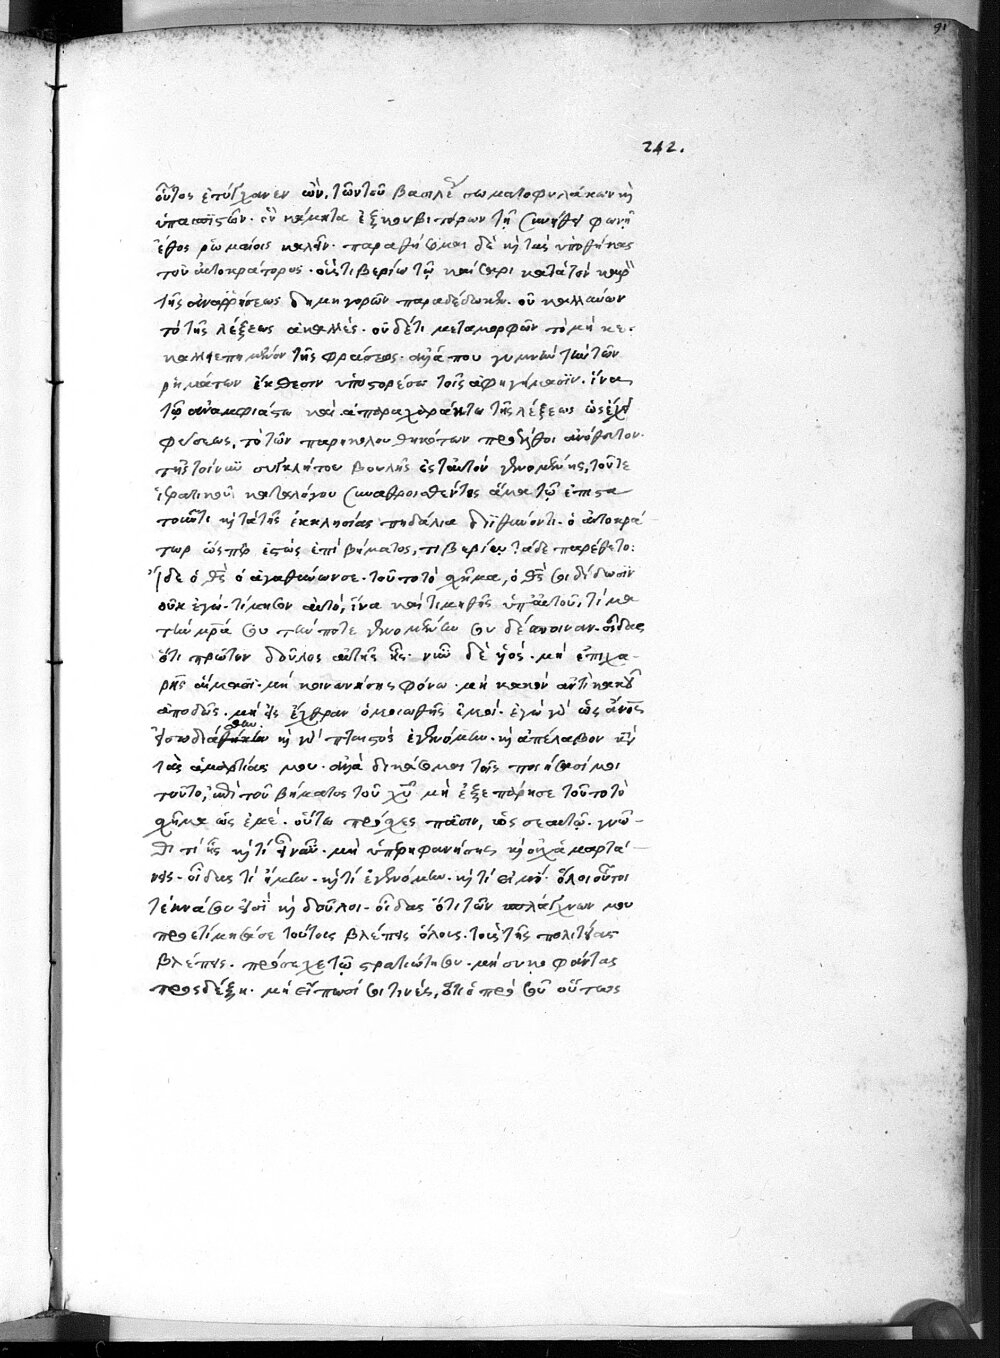 91
242.
οὗτος ἐτύγχανεν ὢν, τῶν τοῦ βασιλέως σωματοφυλάκων κὴ
ὑπασπιστῶν. ὃν κόμητα ἐξκουβιτόρων τῇ συνήθει φωνῇ
ἔθος ῥωμαίοις καλεῖν. παραθήσωμαι δὲ κὴ τὰς ὑποθήκας
τοῦ αὐτοκράτορος. ἃς τιβερίω τῷ καίσαρι κατὰ τὸν καιρὸν
τῆς ἀναρρήσεως δημηγορῶν παραδέδωκεν. οὐ καλλύνων
τὸ τῆς λέξεως ἀκαλλές. οὐδέ τι μεταμορφῶν τὸ μὴ κε-
καλλιεπημένον τῆς φράσεως. ἀλλά που γυμνὴν τὴν τῶν
ῥημάτων ἔκθεσιν ὑποστορέσω τοῖς ἀφηγήμασιν. ἵνα
τῷ ἀναμφιάστω καὶ ἀπαραχαράκτω τῆς λέξεως ὡς ἔχει
φύσεως, τὸ τῶν παρηκολουθηκότων προέλθοι ἀνόθευτον.
τῆς τοίνυν συγκλήτου βουλῆς ἐς ταυτὸν γενομένης, τοῦτε
ἱερατικοῦ καταλόγου συναθροισθέντος ἅμα τῷ ἐπιστα-
τοῦντι κὴ τὰ τῆς ἐκκλησίας πηδάλια διϊθύνοντι. ὁ αὐτοκρά-
τωρ ὥσπερ ἑστὼς ἐπὶ βήματος, τιβερίῳ τάδε παρέθετο:
Ἰδε ὁ θς ὁ ἀγαθύνων σε. τοῦτο τὸ σχῆμα, ὁ θς σοι δίδωσιν
οὐκ ἐγώ. τίμησον αὐτό, ἵνα καὶ τιμηθῇς ὑπ αὐτοῦ, τίμα
τὴν μρα σου τήν ποτε γενομένην σου δέσποιναν. οἶδας
ὅτι πρῶτον δοῦλος αὐτῆς ἦς. νῦν δὲ υἱός. μὴ ἐπιχα-
ρῇς αἵμασι. μὴ κοινωνήσῃς φόνω. μὴ κακὸν ἀντὶ κακοῦ
ἀποδῷς. μὴ εἰς ἔχθραν ὁμοιωθῇς ἐμοί. ἐγὼ γὰρ ὡς ἄνος
κὴ γὰρ πταιστὸς ἐγενόμην. κὴ ἀπέλαβον κατὰ
τὰς ἁμαρτίας μου. ἀλλὰ δικάσομαι τοῖς ποιήσασί μοι
τοῦτο, ἐπὶ τοῦ βήματος τοῦ χυ μὴ ἐξεπάρῃ σε τοῦτο τὸ
σχῆμα ὡς ἐμέ. οὕτω πρόσχες πᾶσιν, ὡς σεαυτῷ. γνῶ-
θι τί ἦς κὴ τί εἶ νῦν. μὴ ὑπερηφανήσῃς κὴ οὐχ ἁμαρτά-
νεις. οἶδας τί ἤμην. κὴ τί ἐγενόμην. κὴ τί εἰμί. ὅλοι οὗτοι
τέκνα σου εἰσὶ κὴ δοῦλοι. οἶδας ὅτι τῶν σπλάγχνων μου
προετίμησά σε τούτους βλέπεις ὅλους. τοὺς τῆς πολιτείας
βλέπεις. πρόσεχε τῷ στρατιώτη σου. μὴ συκοφάντας
προσδέξῃ. μὴ εἴπωσί σοι τινές, ὅτι ὁ πρό σου οὕτως